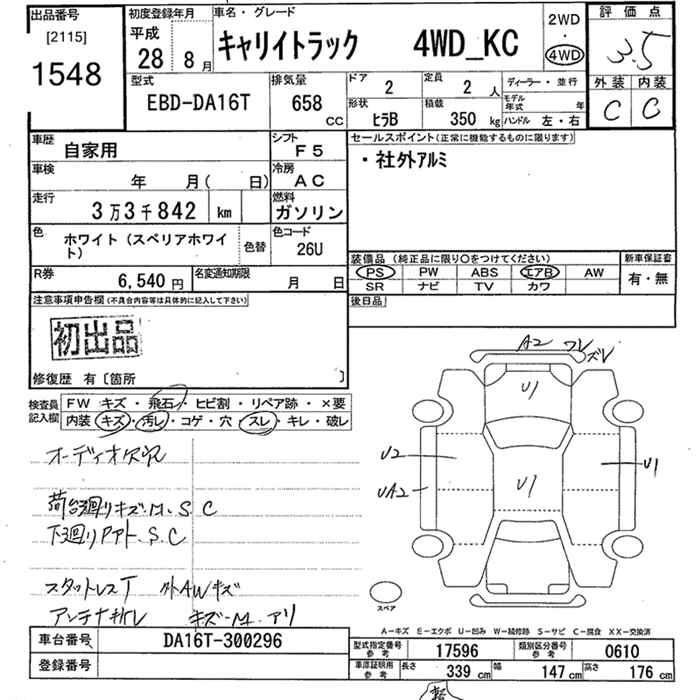 出品番号
[2115]
1548
初度登録年月
平成
28年 8月
車名・グレード
キャリイトラック 4WD_KC
2WD
・
4WD
評価点
3.5
外装 内装
C C
型式
EBD-DA16T
排気量
658
CC
ドア
2
定員
2 人
形状
ヒラB
積載
350 kg
ディーラー・並行
モデル年式 年
ハンドル 左・右
車歴
自家用
シフト
F5
車検
年 月( 日)
冷房
AC
走行
3万3千842 km
燃料
ガソリン
色
ホワイト(スペリアホワイ
ト)
色替
色コード
26U
R券
6,540 円
名変通知期限
月 日
セールスポイント(正常に機能するものに限ります)
・社外アルミ
装備品(純正品に限り○をつけてください)
PS PW ABS エアB AW
SR ナビ TV カワ
新車保証書
有・無
後日品
注意事項申告欄(不具合内容等は具体的に記入して下さい)
初出品
修復歴 有〔箇所 〕
検査員
記入欄
FW キズ・飛石・ヒビ割・リペア跡・×要
内装 キズ・汚レ・コゲ・穴・スレ・キレ・破レ
オーディオ欠品
荷台廻りキズ・M.S.C
下廻り S.C
スタットレスT 外AWキズ
アンテナ
キズ・M アリ
A2 ワレ
ズレ
U1
U2
UA2
U1
U1
スペア
A-キズ E-エクボ U-凹み W-補修跡 S-サビ C-腐食 XX-交換済
車台番号
DA16T-300296
登録番号
型式指定番号
参考
17596
類別区分番号
参考
0610
車庫証明用
参考
長さ 339 cm
幅 147 cm
高さ 176 cm